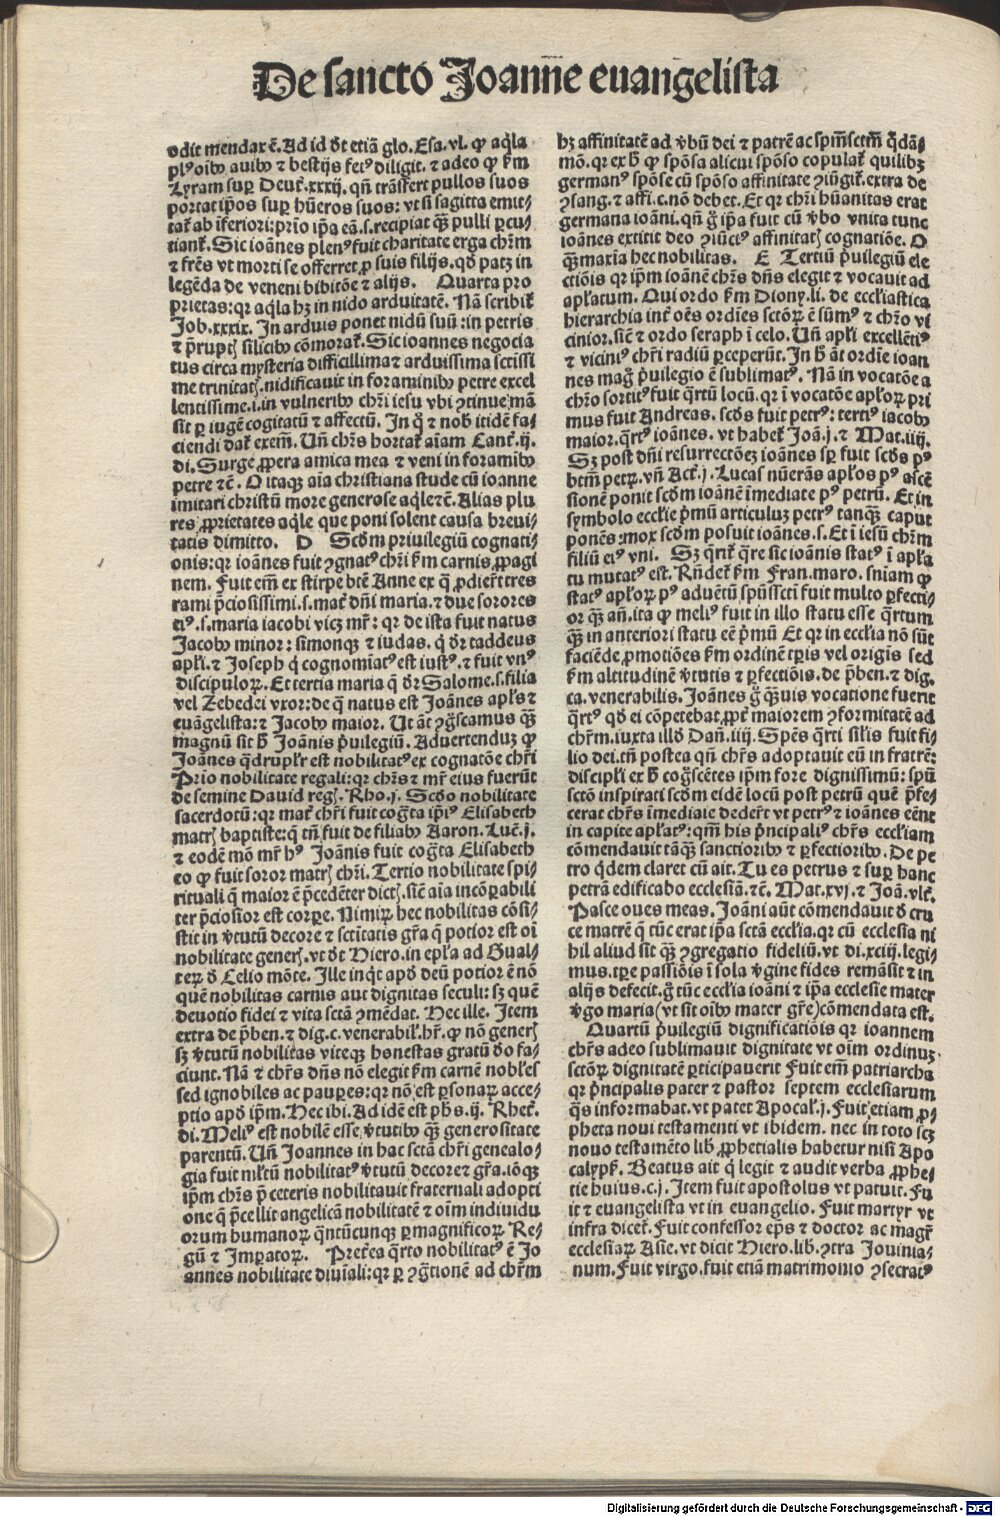 De sancto Joanne euangelista
odit mendax ē. Ad id dt etiā glo. Esa. vl. ꝙ aq̈la
plꝰ oībꝰ auibꝰ ⁊ bestijs fetꝰ diligit. ⁊ adeo ꝙ ẜm
Lyram suꝑ Deut̄. xxxij. qn̄ trāsfert pullos suos
portat ip̄os suꝑ hūeros suos: vt si sagitta emit-
tat̄ ab īferiori: prīo ip̄a eā. s. recipiat qꝫ̄ pulli ꝑcu-
tiant̄. Sic ioānes plenꝰ fuit charitate erga chr̄m
⁊ fr̄es vt morti se offerret ꝓ suis filijs. qd̄ patꝫ in
legēda de veneni bibitōe ⁊ alijs. Quarta pro
prietas: qꝛ aq̈la hꝫ in nido arduitatē. Nā scribit̄
Job. xxxix. In arduis ponet nidū suū: in petris
⁊ p̄ruptꝭ silicibꝰ cōmorat̄. Sic ioannes negocia
tus circa mysteria difficillima ⁊ arduissima sctissi
me trinitatꝭ. nidificauit in foraminibꝰ petre excel
lentissime. i. in vulneribꝰ chr̄i iesu vbi ꝯtinue mā
sit ꝑ iugē cogitatū ⁊ affectū. In q̊ ⁊ nob̄ itidē fa-
ciendi dat̄ exem̄. Un̄ chr̄s hortat̄ aīam Cant̄. ij.
di. Surge ꝓpera amica mea ⁊ veni in foramibꝰ
petre ⁊c̄. O itaqꝫ aīa christiana stude cū ioanne
imitari christū more generose aq̈le ⁊c̄. Alias plu
res ꝓprietates aq̈le que poni solent causa breui-
tatis dimitto. D Scd̄m priuilegiū cognati-
onis: qꝛ ioānes fuit ꝯgnatꝰ chr̄i ẜm carnis ꝓpagi
nem. Fuit em̄ ex stirpe btē Anne ex q̄ ꝓdier̄t tres
rami p̄ciosissimi. s. mat̄ dn̄i maria. ⁊ due sorores
eiꝰ. s. maria iacobi vicꝫ mr̄: qꝛ de ista fuit natus
Jacobꝰ minor: simonqꝫ ⁊ iudas. q̇ dr̄ taddeus
apl̄i. ⁊ Joseph q̇ cognomīatꝰ est iustꝰ. ⁊ fuit vnꝰ
discipuloꝝ. Et tertia maria q̄ dr̄ Salome. s. filia
vel Zebedei vxor: de q̄ natus est Joānes apl̄s ⁊
euāgelista: ⁊ Jacobꝰ maior. Ut āt ꝯg̊scamus qꝫ̄
magnū sit ḥ Joānis p̓uilegiū. Aduertenduꝫ ꝙ
Joānes q̈drupl̄r est nobilitatꝰ ex cognatōe chr̄i
Prīo nobilitate regali: qꝛ chr̄s ⁊ mr̄ eius fuerūt
de semine Dauid regꝭ. Rho. j. Scd̄o nobilitate
sacerdotū: qꝛ mat̄ chr̄i fuit cogta ip̄iꝰ Elisabeth
matrꝭ baptiste: q̄ tn̄ fuit de filiabꝰ Aaron. Luc̄. j.
⁊ eodē mō mr̄ hꝰ Joānis fuit cogta Elisabeth
eo ꝙ fuit soror matrꝭ chr̄i. Tertio nobilitate spi-
rituali q̄ maior ē p̄cedēter dictꝭ. sic̄ aīa incōꝑabili
ter p̄ciosior est corꝑe. Nimiꝝ hec nobilitas cōsi-
stit in v̓tutū decore ⁊ sctītatis gr̄a q̄ potior est oī
nobilitate generꝭ. vt dt Hiero. in epl̄a ad Gual-
teꝝ d̓ Celio mōte. Ille inq̇t apd̓ deū potior ē nō
quē nobilitas carnis aut dignitas seculi: sꝫ quē
deuotio fidei ⁊ vita sctā ꝯmēdat. Hec ille. Item
extra de p̄ben. ⁊ dig. c. venerabil̓. hr̄. ꝙ nō generꝭ
sꝫ v̓tutū nobilitas viteqꝫ honestas gratū do fa-
ciunt. Nā ⁊ chr̄s dn̄s nō elegit ẜm carnē nobl̓es
sed ignobiles ac pauꝑes: qꝛ nō est ꝑsonaꝝ acce-
ptio apd̓ ip̄m. Hec ibi. Ad idē est ph̄s. ij. Rhet̄.
di. Meliꝰ est nobilē esse v̓tutibꝰ qꝫ̄ generositate
parentū. Un̄ Joannes in hac sctā chr̄i genealo-
gia fuit ml̓tū nobilitatꝰ v̓tutū decore ⁊ gr̄a. iōqꝫ
ip̄m chr̄s p̄ ceteris nobilitauit fraternali adopti
one q̄ p̄cellit angelicā nobilitatē ⁊ oīm indiuidu
orum humanoꝝ q̈ntūcunqꝫ ꝑmagnificoꝝ Re-
gū ⁊ Imꝑatoꝝ. Pret̓ea q̈rto nobilitatꝰ ē Jo
annes nobilitate diuīali: qꝛ ꝑ ꝯg̈tionē ad chr̄m
hꝫ affinitatē ad v̓bū dei ⁊ patrē ac spm̄sctm̄ q̈dā-
mō. qꝛ ex ḥ ꝙ spōsa alicui spōso copulat̄ quilibꝫ
germanꝰ spōse cū spōso affinitate ꝯiūgit̄. extra de
ꝯsang. ⁊ affi. c. nō debet. Et qꝛ chr̄i hūanitas erat
germana ioāni. qn̄ g̊ ip̄a fuit cū v̓bo vnita tunc
ioānes extitit deo ꝯiūctꝰ affinitatꝭ cognatiōe. O
qꝫ̄ maria hec nobilitas. E Tertiū p̓uilegiū ele
ctiōis qꝛ ip̄m ioānē chr̄s dn̄s elegit ⁊ vocauit ad
apl̄atum. Qui ordo ẜm Diony. li. de eccl̄iastica
hierarchia int̄ oēs ordīes sctōꝝ ē sūmꝰ ⁊ chr̄o vi
cinior. sic̄ ⁊ ordo seraph ī celo. Un̄ apl̄i excellētiꝰ
⁊ viciniꝰ chr̄i radiū ꝑceperūt. In ḥ āt ordīe ioan
nes mag̊ p̓uilegio ē sublimatꝰ. Nā in vocatōe a
chr̄o sortitꝰ fuit q̈rtū locū. qꝛ ī vocatōe apl̄oꝝ pri
mus fuit Andreas. scd̓s fuit petrꝰ: tertiꝰ iacobꝰ
maior. q̈rtꝰ ioānes. vt habet̄ Joā. j. ⁊ Mat. iiij.
Sꝫ post dn̄i resurrectōeꝫ ioānes sꝑ fuit scd̓s pꝰ
btm̄ petꝝ. vn̄ Act̄. j. Lucas nūerās apl̄os pꝰ ascē
sionē ponit scd̓m ioānē īmediate pꝰ petrū. Et in
symbolo eccl̄ie p̓mū articuluꝫ petrꝰ tanqꝫ̄ caput
ponēs: mox scd̓m posuit ioānes. s. Et ī iesū chr̄m
filiū eiꝰ vni. Sꝫ q̈rit̄ q̈re sic ioānis statꝰ ī apl̄a
tu mutatꝰ est. Rn̄det̄ ẜm Fran. maro. sn̄iam ꝙ
statꝰ apl̄oꝝ pꝰ aduētū spūsscti fuit multo ꝑfecti-
or qꝫ̄ an̄. ita ꝙ meliꝰ fuit in illo statu esse q̈rtum
qꝫ̄ in anteriori statu eē p̓mū Et qꝛ in eccl̄ia nō sūt
faciēde ꝓmotiōes ẜm ordinē tꝑis vel origīs sed
ẜm altitudinē v̓tutis ⁊ ꝑfectiōis. de p̄ben. ⁊ dig.
ca. venerabilis. Joānes g̊ qꝫ̄uis vocatione fuerit
q̈rtꝰ qd̓ ei cōpetebat ꝓpt̄ maiorem ꝯformitatē ad
chr̄m. iuxta illd̓ Dan̄. iij. Spēs q̈rti sil̓is fuit fi-
lio dei. tn̄ postea qn̄ chr̄s adoptauit eū in fratrē:
discipl̓i ex ḥ cog̊scētes ip̄m fore dignissimū: spū
sctō inspirati scd̓m eidē locū post petrū quē p̄fe-
cerat chr̄s īmediate deder̄t vt petrꝰ ⁊ ioānes eēnt
in capite apl̄atꝰ: qm̄ his p̓ncipaliꝰ chr̄s eccl̄iam
cōmendauit tāqꝫ̄ sanctioribꝰ ⁊ ꝑfectioribꝰ. De pe
tro q̇dem claret cū ait. Tu es petrus ⁊ suꝑ hanc
petrā edificabo ecclesiā. ⁊c̄. Mat. xvj. ⁊ Joā. vlt̄.
Pasce oues meas. Joāni aūt cōmendauit d̓ cru
ce matrē q̄ tūc erat ip̄a sctā eccl̄ia. qꝛ cū ecclesia ni
hil aliud sit qꝫ̄ ꝯgregatio fideliū. vt di. xciij. legi-
mus. tꝑe passiōis ī sola v̓gine fides remāsit ⁊ in
alijs defecit. g̊ tūc eccl̄ia ioāni ⁊ ip̄a ecclesie mater
v̓go maria (vt sit oībꝰ mater gr̄e) cōmendata est.
Quartū p̓uilegiū dignificatiōis qꝛ ioannem
chr̄s adeo sublimauit dignitate vt oīm ordinuꝫ
sctōꝝ dignitatē ꝑticipauerit Fuit em̄ patriarcha
qꝛ p̓ncipalis pater ⁊ pastor septem ecclesiarum
q̄s informabat. vt patet Apocal̓. j. Fuit etiam ꝓ-
pheta noui testamenti vt ibidem. nec in toto scꝫ
nouo testamēto lib̓ ꝓphetialis habetur nisi Apo
calyps̄. Beatus ait q̇ legit ⁊ audit verba ꝓphe-
tie huius. c. j. Item fuit apostolus vt patuit. Fu
it ⁊ euangelista vt in euangelio. Fuit martyr vt
infra dicet̄. Fuit confessor ep̄s ⁊ doctor ac magr̄
ecclesiaꝝ Asie. vt dicit Hiero. lib. ꝯtra Jouinia-
num. Fuit virgo. fuit etiā matrimonio ꝯsecratꝰ
Digitalisierung gefördert durch die Deutsche Forschungsgemeinschaft - DFG